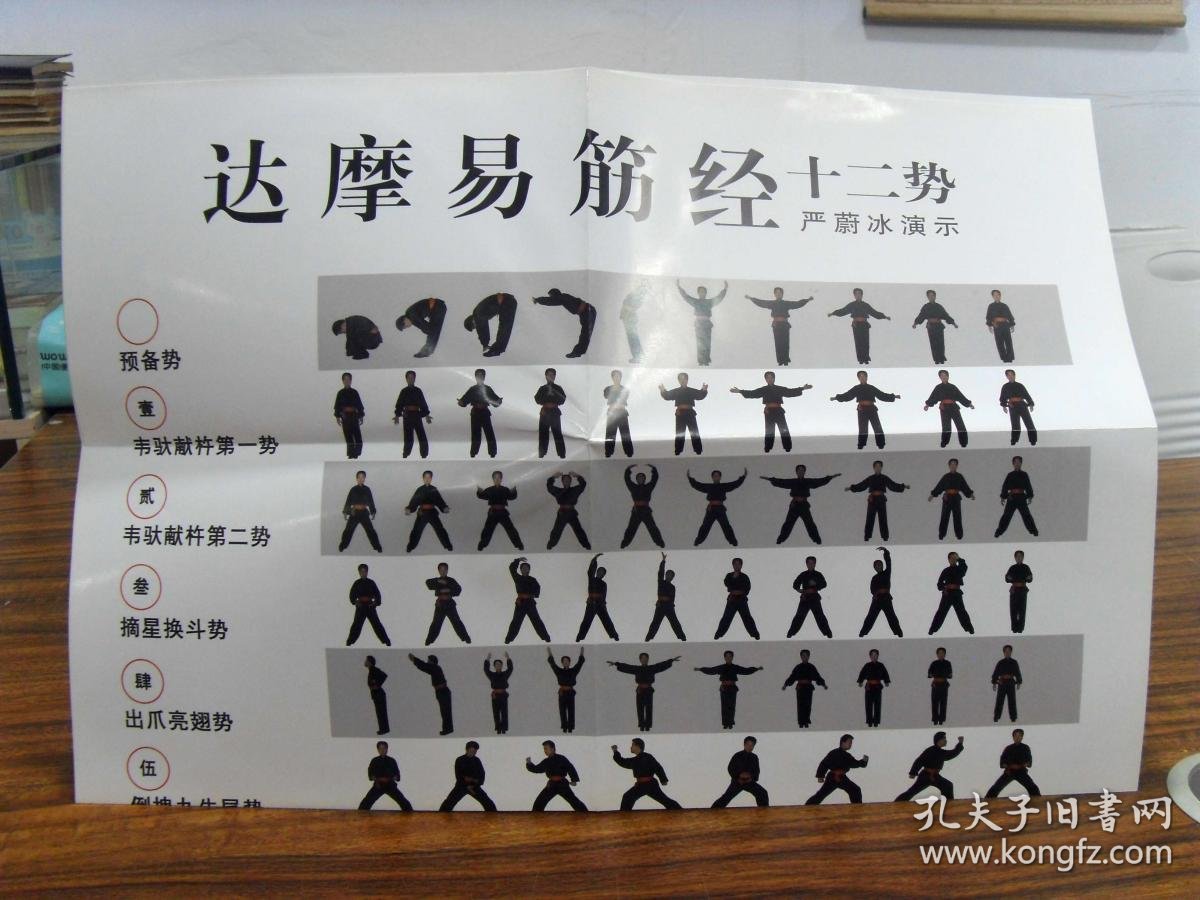 达摩易筋经十二势
严蔚冰演示
预备势
壹
韦驮献杵第一势
贰
韦驮献杵第二势
叁
摘星换斗势
肆
出爪亮翅势
伍
倒拽九牛尾势
wow
孔夫子旧书网
www.kongfz.com